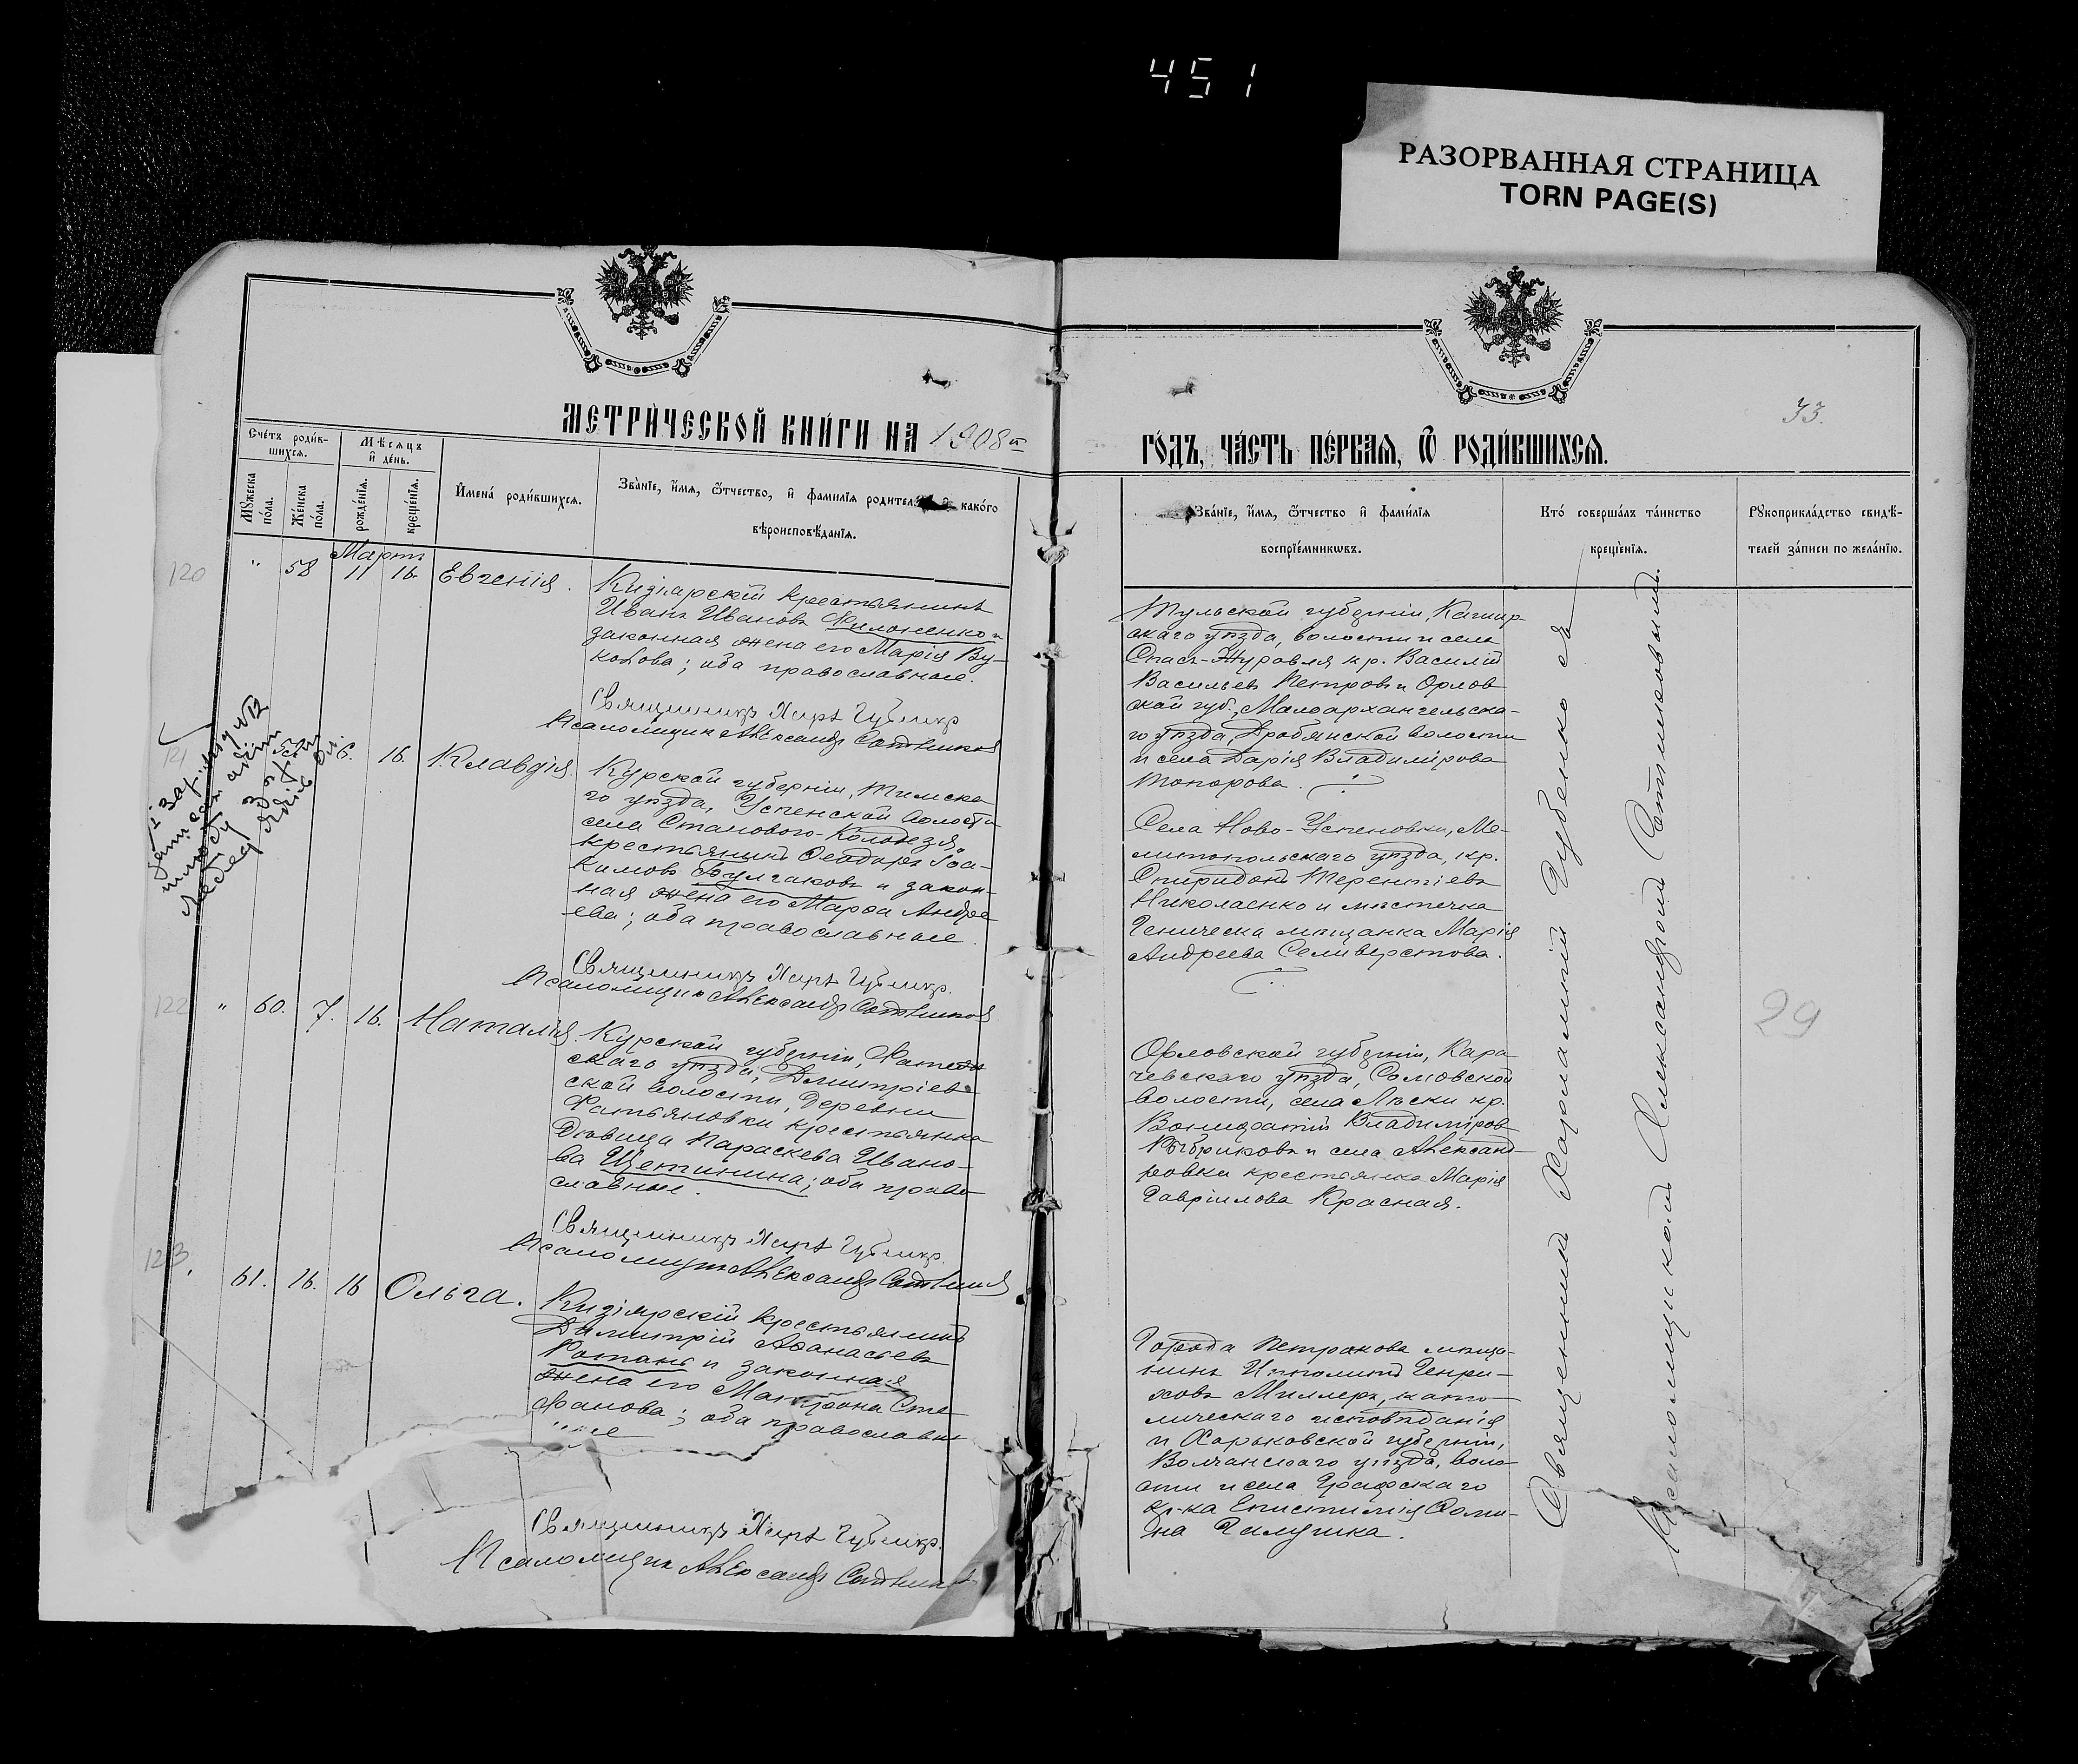 451
РАЗОРВАННАЯ СТРАНИЦА
TORN PAGE(S)
МЕТРИ́ЧЕСКОЙ КНИ́ГИ НА 1908 й
ГО́ДЪ, ЧА́СТЬ ПЕ́РВАЯ, Ѿ РОДИ́ВШИХСЯ.
33.
Сче́тъ роди́в-
шихся.
Мѣ́сяцъ
и҆ де́нь.
Мꙋ́жеска по́ла.
Же́нска по́ла.
рожде́нїя.
креще́нїя.
И҆мена̀ роди́вшихся.
Зва́нїе, и҆́мя, ѻ҆́тчество, и҆ фами́лїя како́го
вѣроисповѣ́данїя.
Зва́нїе, и҆́мя, ѻ҆́тчество и҆ фами́лїя
воспрїе́мникѡвъ.
Кто̀ соверша́лъ та́инство
креще́нїя.
Рꙋкоприкла́дство свидѣ́-
телей за́писи по жела́нїю.
Мартъ
120 " 58 11 16 Евгенія.
Кизіярскій крестьянинъ
Иванъ Ивановъ Филоненко и
законная жена его Марія Ву-
колова; оба православные.
Священникъ Харл. Губенко
Псаломщикъ Александръ Сотниковъ
Тульской губерніи, Кашир-
скаго уѣзда, волости и села
Спасъ-Журавля кр. Василій
Васильевъ Петровъ и Орлов-
ской губ., Малоархангельска-
го уѣзда, Дробянской волости
и села Дарія Владимірова
Топорова.
121 6. 16. Клавдія.
Курской губерніи, Тимска-
го уѣзда, Успенской волости
села Станового-Колодезя,
крестьянинъ Ѳеодоръ Іоа-
кимовъ Булгаковъ и закон-
ная жена его Марѳа Андре-
ева; оба православные.
Священникъ Харл. Губенко.
Псаломщикъ Александръ Сотниковъ
Села Ново-Успеновки, Ме-
литопольскаго уѣзда, кр.
Спиридонъ Терентіевъ
Николаенко и мѣстечка
Геническа мѣщанка Марія
Андреева Селиверстова.
122 " 60. 7. 16. Наталія.
Курской губерніи, Фатеж-
скаго уѣзда, Дмитріев-
ской волости, деревни
Фатьяновки крестьянка
дѣвица Параскева Ивано-
ва Щетинина; оба право-
славные.
Священникъ Харл. Губенко.
Псаломщикъ Александръ Сотниковъ
Орловской губерніи, Кара-
чевскаго уѣзда, Сомовской
волости, села Лѣски кр.
Вонифатій Владиміров
и села Александ-
ровки крестьянка Марія
Гавріилова Красная.
123. 61. 16. 16 Ольга.
Кизіярскій крестьянинъ
Димитрій Аѳанасьевъ
Ротань и законная
жена его Матрона Сте-
фанова; оба православ-
ные
Священникъ Харл. Губенко.
Псаломщикъ Александръ Сотниковъ
Города Петракова мѣща-
нинъ Ипполитъ Генри-
ховъ Миллеръ, като-
лическаго исповѣданія
и Харьковской губерніи,
Волчанскаго уѣзда, воло-
сти и села Графскаго
кр-ка Епистимія Ѳоми-
на Галушка.
Священникъ Харлампій Губенко съ
Псаломщикомъ Александромъ Сотниковымъ.
29